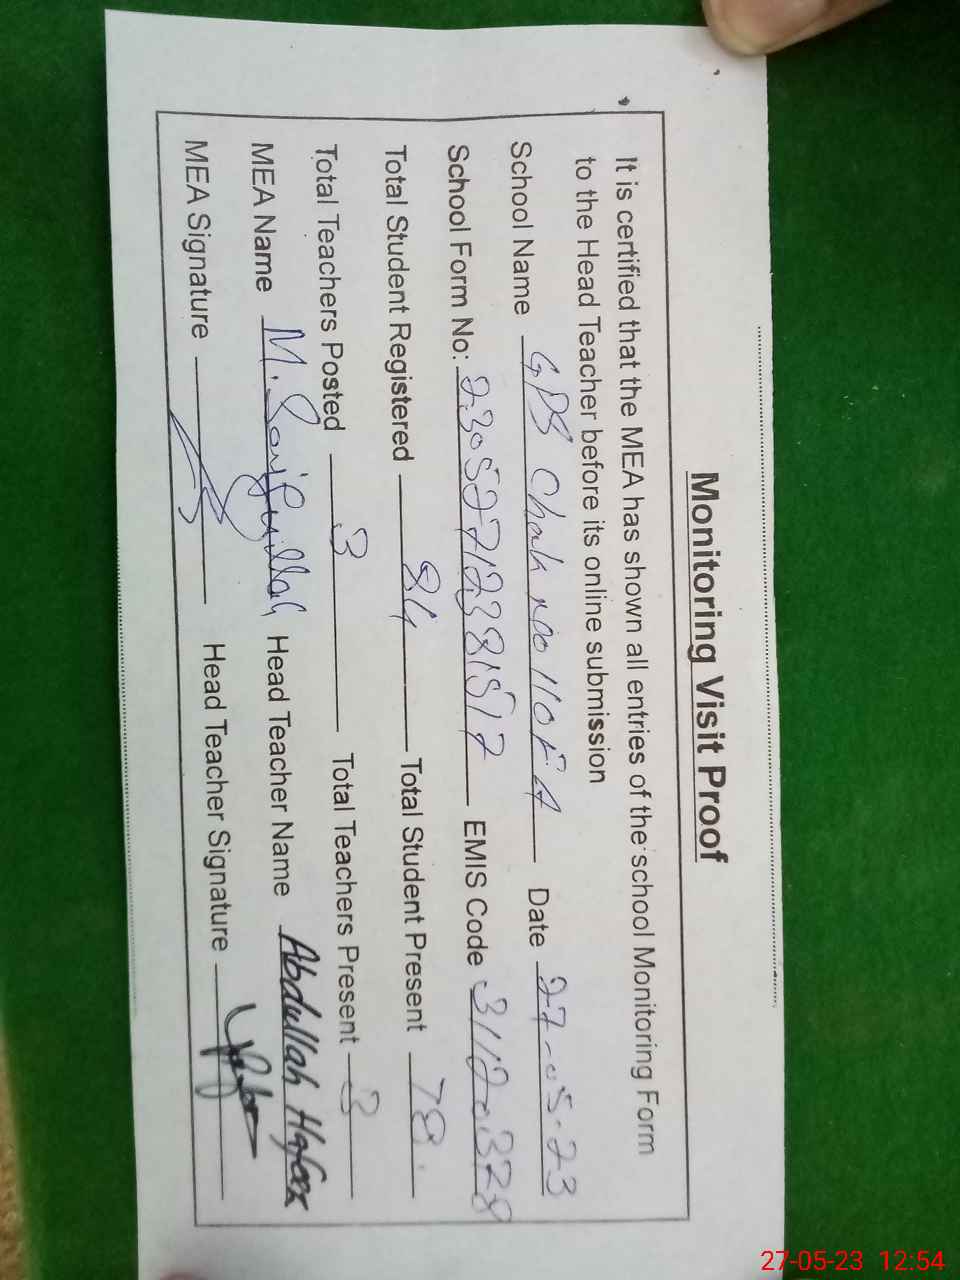 Monitoring Visit Proof
It is certified that the MEA has shown all entries of the school Monitoring Form
to the Head Teacher before its online submission
School Name GPS Chak no 110 Date 27-05-23
School Form No: EMIS Code 31120328
Total Student Registered 84 Total Student Present 78.
Total Teachers Posted 3 Total Teachers Present 3
MEA Name M. Saifullah Head Teacher Name Abdullah
MEA Signature Head Teacher Signature
27-05-23 12:54